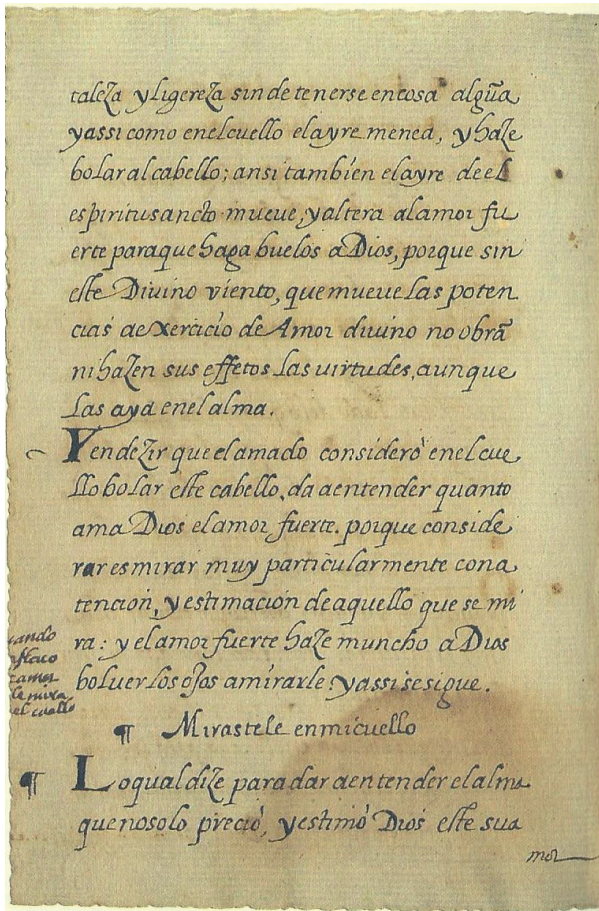 taleza y ligereza sin detenerse en cosa algũa
y assi como en el cuello el ayre menea, y haze
bolar al cabello; ansi tambien el ayre de el
espiritu sancto mueve, y altera al amor fu
erte para que haga buelos a Dios, porque sin
este Divino viento, que mueve las poten
cias a exercicio de Amor divino no obrã
ni hazen sus effetos las virtudes, aunque
las aya en el alma.
Y en dezir que el amado consideró en el cue
llo bolar este cabello, da a entender quanto
ama Dios el amor fuerte. porque conside
rar es mirar muy particularmente con a
tencion, y estimacion de aquello que se mi
ra: y el amor fuerte haze muncho a Dios
bolver los ojos a mirarle. y assi se sigue.
¶ Mirastele en mi cuello
¶ Lo qual dize para dar a entender el alma
que no solo preció, y estimó Dios este su a
mor